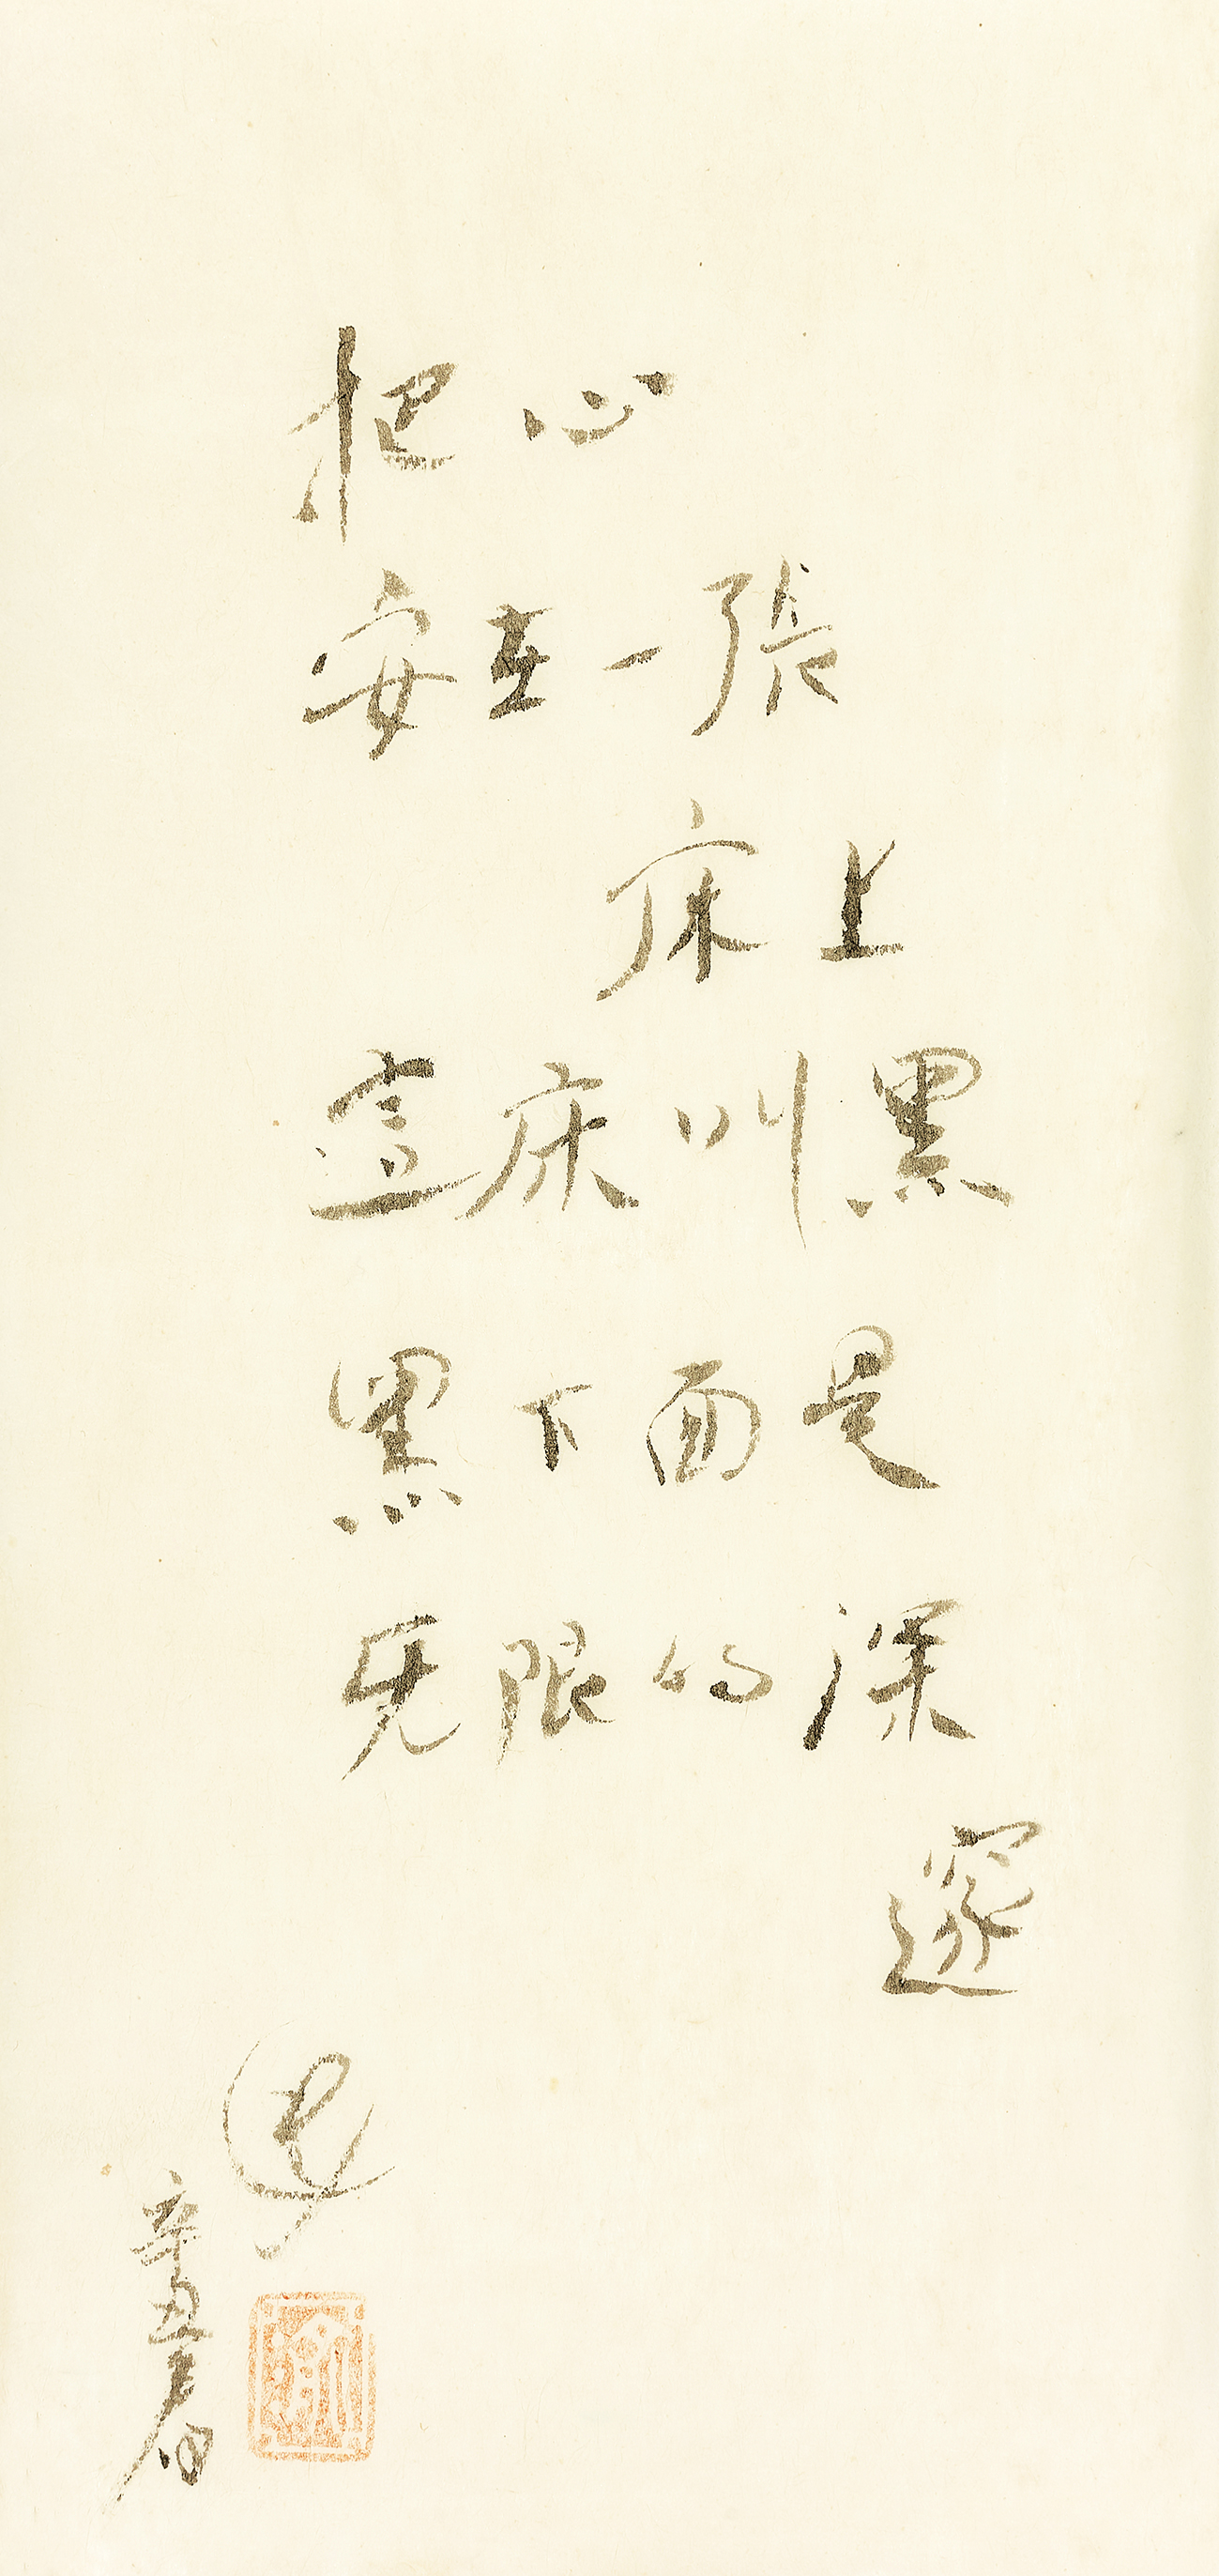 把心
安在一張
床上
這床叫黑
黑下面是
无限的深
邃
辛丑春